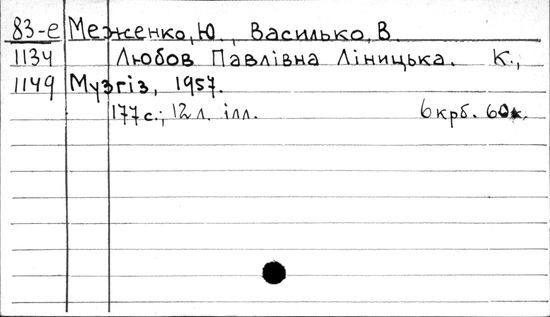 83-е Меженко, Ю., Василько, В.
1134 Любов Павлівна Ліницька. К.,
1149 Музгіз, 1957.
177 с.; 12 л. ілл. 6 крб. 60 к.